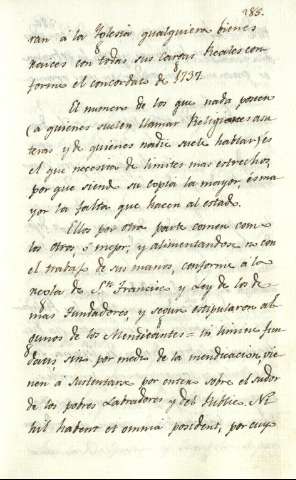 188.
ran à la Iglesia qualquiera bienes
raices con todas sus cargas Reales con
forme el concordato de 1737.
El numero de los que nada poseen
(a quienes suelen llamar Religiones aus
teras y de quienes nadie suele hablar) es
el que necesita de limites mas estrechos,
por que siendo su copia la mayor, es ma
yor la falta que hacen al estado.
Ellos por otra parte comen como
los otros ó mejor, y alimentandose no con
el trabajo de sus manos, conforme à la
regla de Sn. Francisco y Ley de los de
mas Fundadores, y segun estipularon al
gunos de los Mendicantes = in limine fun
datis, sino por medio de la mendicacion, vie
nen à sustentarse por entero sobre el sudor
de los pobres Labradores y del Publico. Ni
hil habent et omnia possident, por cuyo